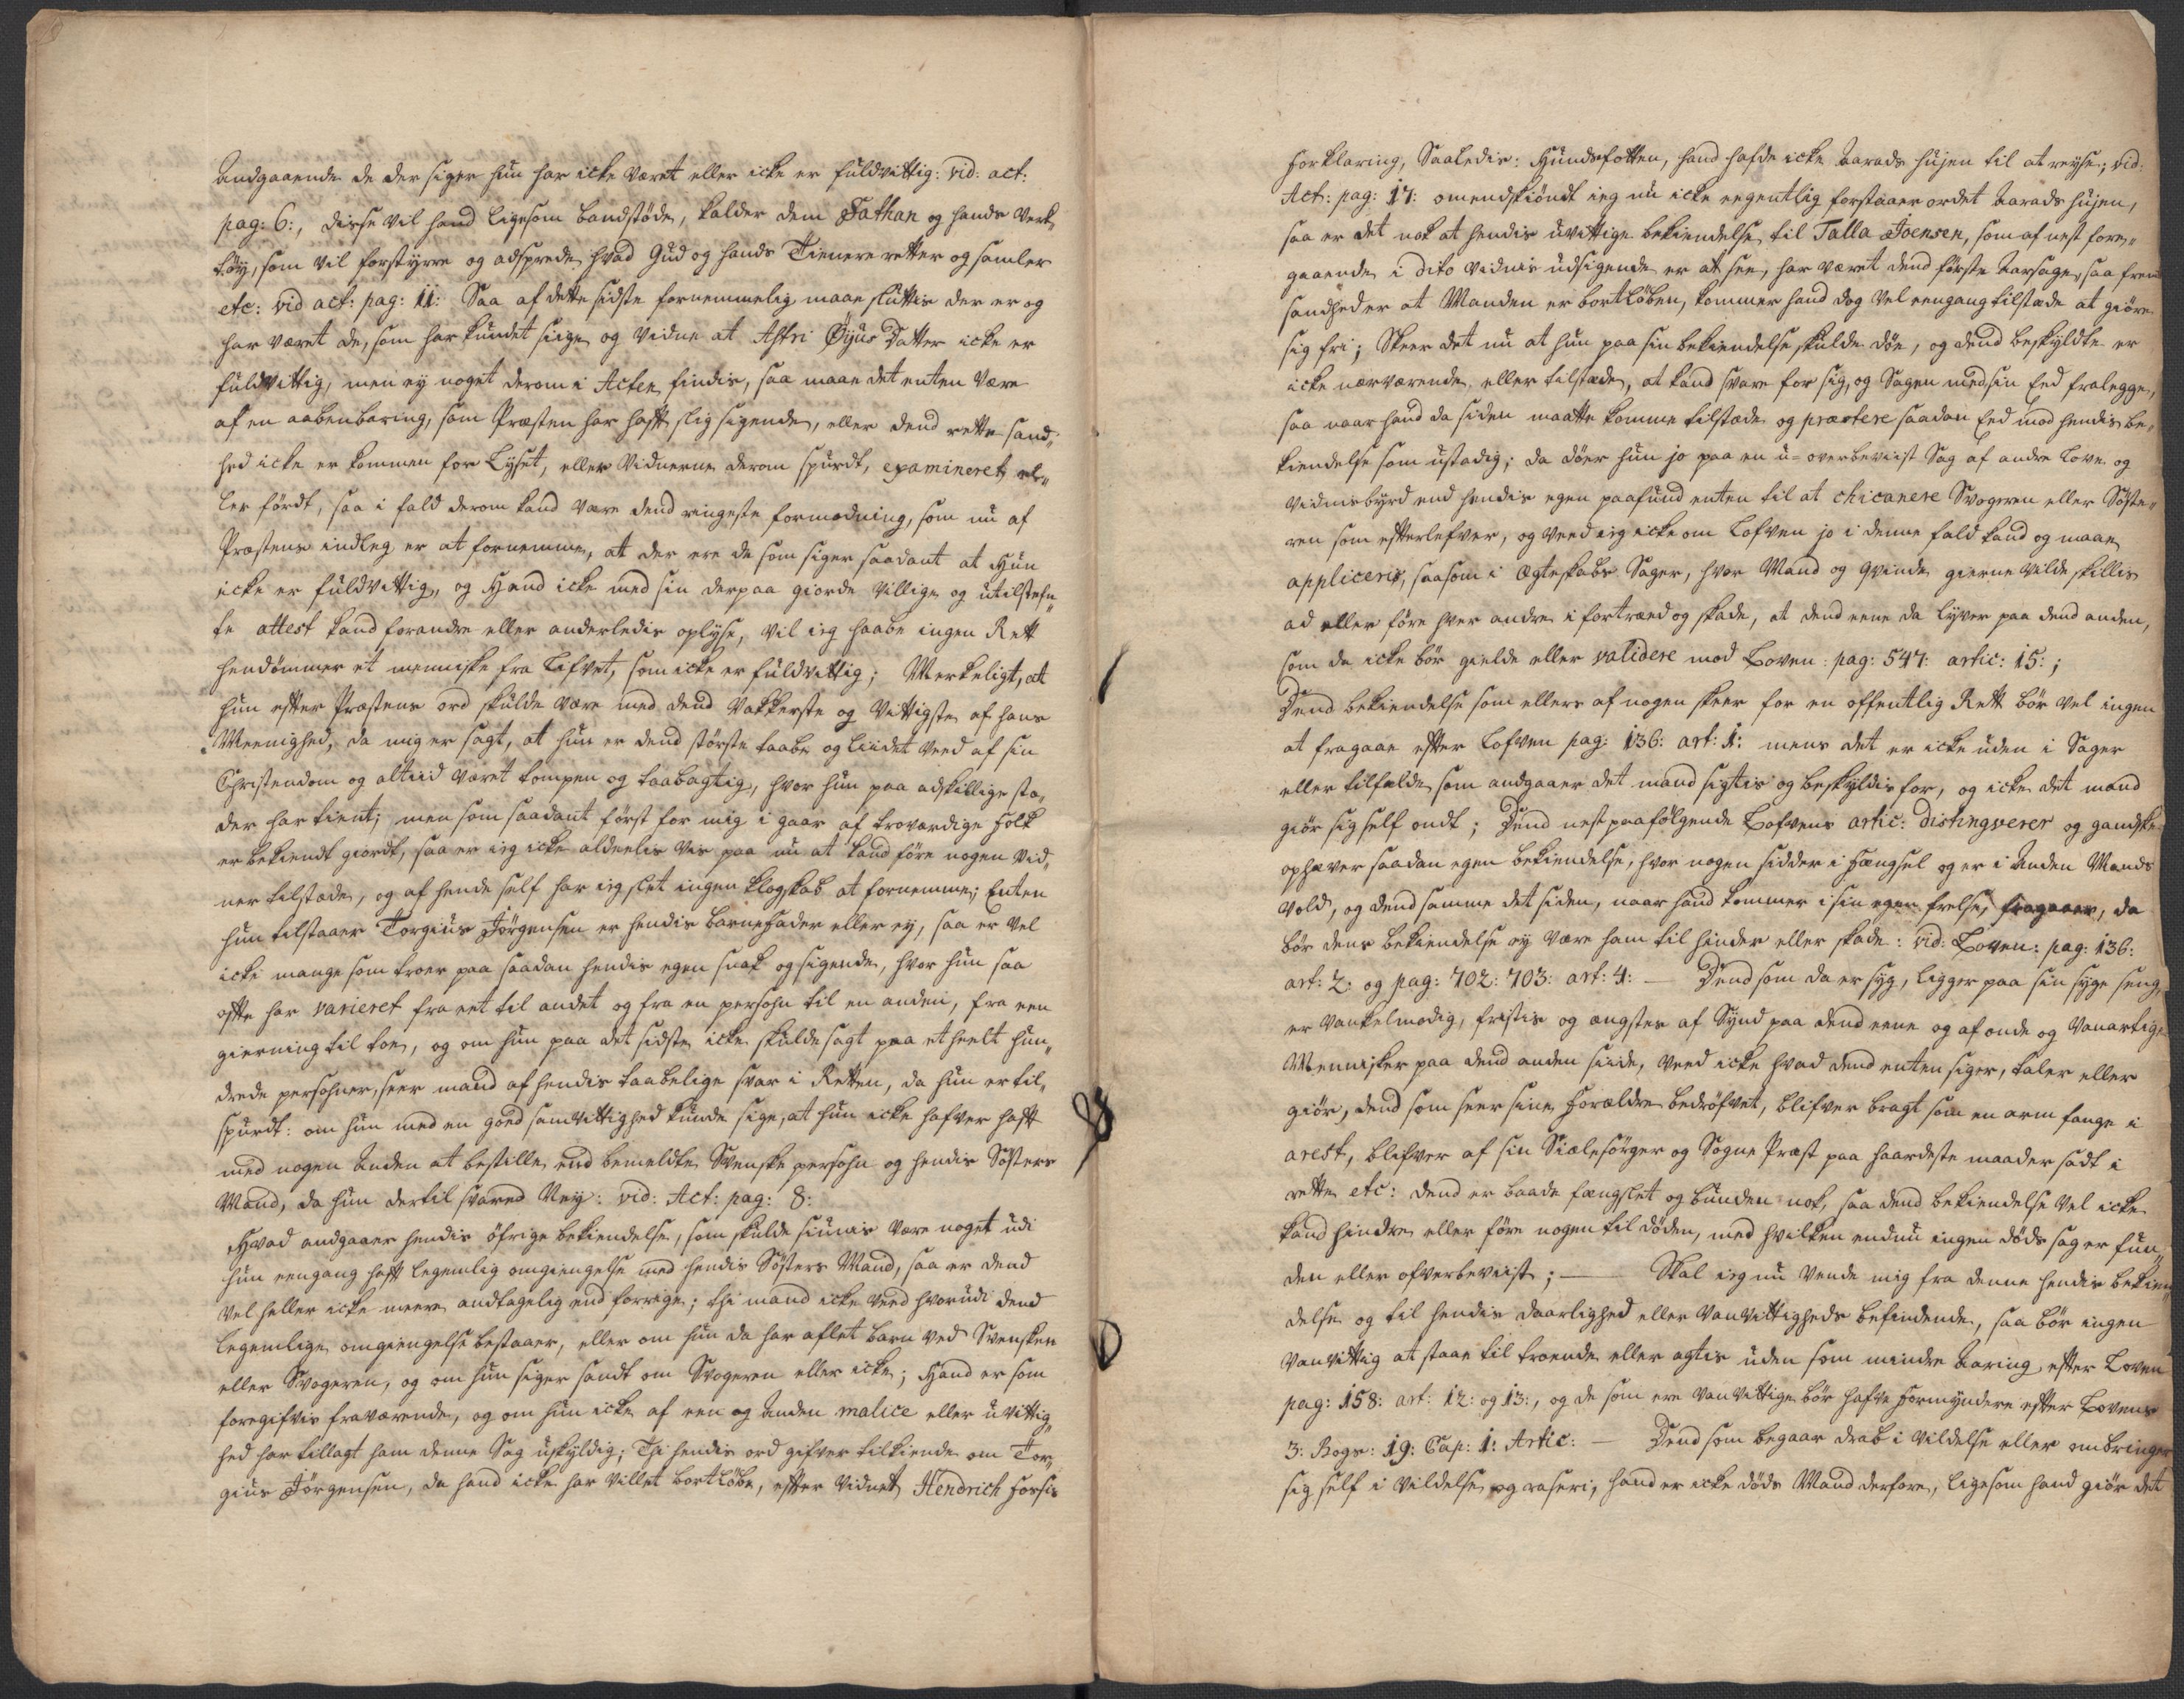 Andgaaende de der siger hun har icke været eller icke er fuldvittig: vid: act:
pag: 6:, disse vil hand ligesom bandstøde, kalder dem Sathan og hands Verk„
tøy, som vil forstyrre og adsprede hvad Gud og hands Tienere retter og samler
etc: vid act: pag: 11: Saa af dette sidste fornemmelig maae sluttis der er og
har været de, som har kundet siige og vidne at Astri Øyus Datter icke er
fuldvittig, men ey noget derom i Acten findis, saa maae det enten være
af en aabenbaring, som Præsten har hafft slig sigende, eller dend rette sand„
hed icke er kommen for Lyset, eller Vidnerne derom spurdt, examineret el„
ler førdt, saa i fald derom kand være dend ringeste formodning, som nu af
Præstens indleg er at fornemme, at der ere de som siger saadant at Hun
icke er fuldvittig, og Hand icke med sin derpaa giorde villige og utilstefn„
te attest kand forandre eller anderledis oplyse, vil ieg haabe ingen Rett
hendømmer et menniske fra Lifvet, som icke er fuldvittig; Merkeligt, at
hun effter Præstens ord skulde være med dend vakkerste og vittigste af hans
Meenighed, da mig er sagt, at hun er dend største taabe og liidet veed af sin
Christendom og altiid været tompen og taabagtig, hvor hun paa adskillige stæ„
der har tient; men som saadant først for mig i gaar af troværdige folk
er bekiendt giordt, saa er ieg icke aldeelis vis paa nu at kand føre nogen vid„
ner tilstæde, og af hende self har ieg slet ingen klogskab at fornemme; Enten
hun tilstaaer Torgius Jørgensen er hendis barnefader eller ey, saa er vel
icke mange som troer paa saadan hendis egen snak og sigende, hvor hun saa
offte har varieret fra eet til andet og fra en persohn til en anden, fra een
gierning til toe, og om hun paa det sidste icke skulde sagt paa et heelt hun„
drede persohner, seer mand af hendis taabelige svar i Retten, da hun er til„
spurdt: om hun med en goed samvittighed kunde sige, at hun icke hafver hafft
med nogen Anden at bestille, end bemeldte Svenske persohn og hendis Søsters
Mand, da hun dertil svared Ney: vid: Act: pag: 8:
Hvad andgaaer hendis øfrige bekiendelse, som skulde siunis være noget udi
hun eengang hafft legemlig omgiengelse med hendis Søsters Mand, saa er dend
vel heller icke meere andtagelig end forrige; thi mand icke veed hvorudi dend
legemlige omgiengelse bestaaer, eller om hun da har aflet barn ved Svensken
eller Svogeren, og om hun siger sandt om Svogeren eller icke; Hand er som
foregifvis fraværende, og om hun icke af een og Anden malice eller uvittig„
hed har tillagt ham denne Sag uskyldig; Thi hendis ord gifver tilkiende om Tor„
gius Jørgensen, da hand icke har villet bortløbe, effter Vidnet Hendrich Forsis
forklaring, Saaledis: Hundsfotten, hand hafde icke Aarads hujen til at reyse; vid:
Act: pag: 17: omendskiøndt ieg nu icke eegentlig forstaaer ordet Aarads hujen,
saa er det nok at hendis uvittige bekiendelse til Talla Joensen, som af nest fore„
gaaende i dito vidnis udsigende er at see, har været dend første Aarsage, saa frem
sandhed er at Manden er bortløben, kommer hand dog vel eengang tilstæde at giøre
sig fri; Skeer det nu at hun paa sin bekiendelse skulde døe, og dend beskyldte er
icke nærværende eller tilstæde, at kand svare for sig, og Sagen med sin Eed fralegge,
saa naar hand da siden maatte komme tilstæde og præstere saadan Eed mod hendis be„
kiendelse som ustadig; da døer hun jo paa en u-overbeviist Sag af andre Love og
vidnisbyrd end hendis egen paafund enten til at chicanere Svogeren eller Søste„
ren som effterlefver, og veed ieg icke om Lofven jo i denne fald kand og maae
appliceris, saasom i Ægteskabs Sager, hvor Mand og Qvinde gierne vilde skillis
ad eller føre hver andre i fortræd og skade, at dend eene da lyver paa dend anden,
som da icke bør gielde eller validere mod Loven: pag: 547: artic: 15:;
Dend bekiendelse som ellers af nogen skeer for en offentlig Rett bør vel ingen
at fragaae effter Lofven pag: 136: art: 1: mens det er icke uden i Sager
eller tilfælde som andgaaer det mand sigtis og beskyldis for, og icke det mand
giør sig self ondt; Dend nest paafølgende Lofvens artic: distingverer og gandske
ophæver saadan egen bekiendelse, hvor nogen sidder i Fængsel og er i Anden Mands
vold, og dend samme det siden, naar hand kommer i sin egen frelse, fragaaer, da
bør dens bekiendelse ey være ham til hinder eller skade: vid: Loven: pag: 136:
art: 2: og pag: 702: 703: art: 4: — Dend som da er syg, ligger paa sin syge seng,
er vankelmodig, fristis og ængstes af Synd paa dend eene og af onde og vanartige
Mennisker paa dend anden siide, veed icke hvad dend enten siger, taler eller
giør, dend som seer sine Forældre bedrøfvet, blifver bragt som en arm fange i
arest, blifver af sin Siælesørger og Sogne Præst paa haardeste maader sadt i
rette etc: dend er baade fængslet og bunden nok, saa dend bekiendelse vel icke
kand hindre eller føre nogen til døden, med hvilken endnu ingen døds sag er fun„
den eller ofverbeviist; — Skal ieg nu vende mig fra denne hendis bekien„
delse og til hendis daarlighed eller vanvittigheds befindende, saa bør ingen
vanvittig at staae til troende eller agtis uden som mindre Aaring effter Loven
pag: 158: art: 12: og 13:, og de som ere vanvittige bør hafve Formyndere effter Lovens
3: Bogs: 19: Cap: 1: Artic: — Dend som begaar drab i vildelse eller ombringer
sig self i vildelse og raseri, hand er icke døds Mand derfore, ligesom hand giør det